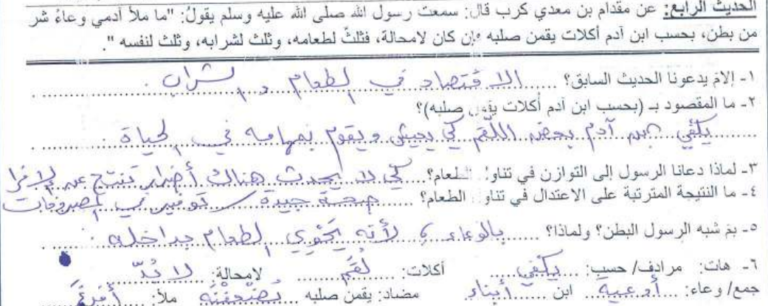 الحديث الرابع: عن مقدام بن معدي كرب قال: سمعت رسول الله صلى الله عليه وسلم يقول: "ما ملأ آدمي وعاءً شر
من بطن، بحسب ابن آدم أكلات يقمن صلبه فإن كان لامحالة، فثلث لطعامه، وثلث لشرابه، وثلث لنفسه".
١- إلامَ يدعونا الحديث السابق؟ الاقتصاد في الطعام والشراب.
٢- ما المقصود بـ (بحسب ابن آدم أكلات يقمن صلبه)؟
يكفي ابن آدم بعض اللقم كي يعيش ويقوم بمهامه في الحياة.
٣- لماذا دعانا الرسول إلى التوازن في تناول الطعام؟ كي لا يحدث هناك أضرار تنتج عن الإفرا
٤- ما النتيجة المترتبة على الاعتدال في تناول الطعام؟ صحة جيدة، توفير في المصروفات
٥- بمَ شبه الرسول البطن؟ ولماذا؟ بالوعاء، لأنه يحتوي الطعام بداخله.
٦- هات: مرادف/ حسب: يكفي أكلات: لُقَم لامحالة: لا بُدَّ
جمع/ وعاء: أوعية ابن أبناء مضاد: يقمن صلبه تُضْعِفْنَهُ ملأ: أَفرغَ